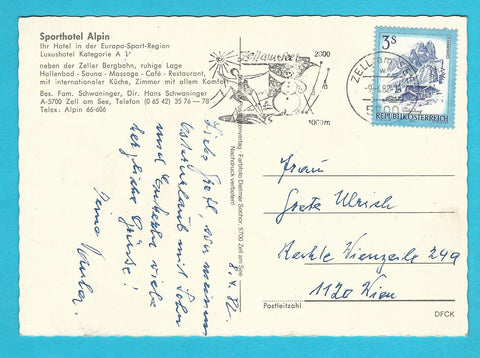 Sporthotel Alpin
Ihr Hotel in der Europa-Sport-Region
Luxushotel Kategorie A 1/
neben der Zeller Bergbahn, ruhige Lage
Hallenbad - Sauna - Massage - Café - Restaurant,
mit internationaler Küche, Zimmer mit allem Komfort
Bes. Fam. Schwaninger, Dir. Hans Schwaninger
A-5700 Zell am See, Telefon (0 65 42) 35 76 — 78
Telex: Alpin 66-606
Zell am See
2000
1000m
ZELL am
5700
3S
REPUBLIK ÖSTERREICH
8. 4. 82.
Liebe Gretl, von meinem
Osterurlaub mit Sohn
und Enkerln viele
herzliche Grüße!
Farbfoto Dietmar Sochor, 5700 Zell am See
Nachdruck verboten!
Frau
Greta Ulrich
Rechte Wienzeile 249
1120 Wien
Postleitzahl
DFCK